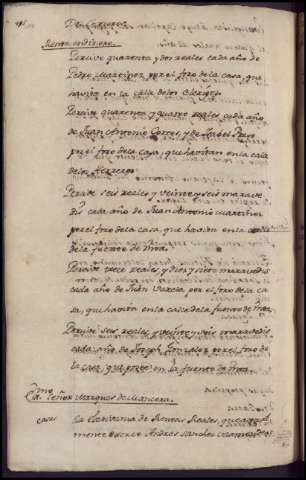 Renta ordinaria.
Percive quarenta y dos reales cada año de
Pedro Martinez por el fuero de la casa, que
havita en la calle de los Clerigos.
Percive quarenta y quatro reales cada año
de Juan Antonio Torres, y de Isabel
por el fuero de la casa, que havitan en la calle
de los Herreros.
Percive seis reales y veinte y seis marave
dis cada año de Juan Antonio
por el fuero de la casa, que havita en la calle
de la fuente de
Percive trece reales, y diez y siete maravedis
cada año de Juan Garcia por el fuero de la ca
sa, que havita en la calle de la fuente de
Percive seis reales, y veinte y seis maravedis
cada año de Joseph Gonzalez por el fuero de
la casa, que posee en la fuente de
Señor Marques de Mancera.
casa
La de Rentas Reales, que
mente Andres Sanchez